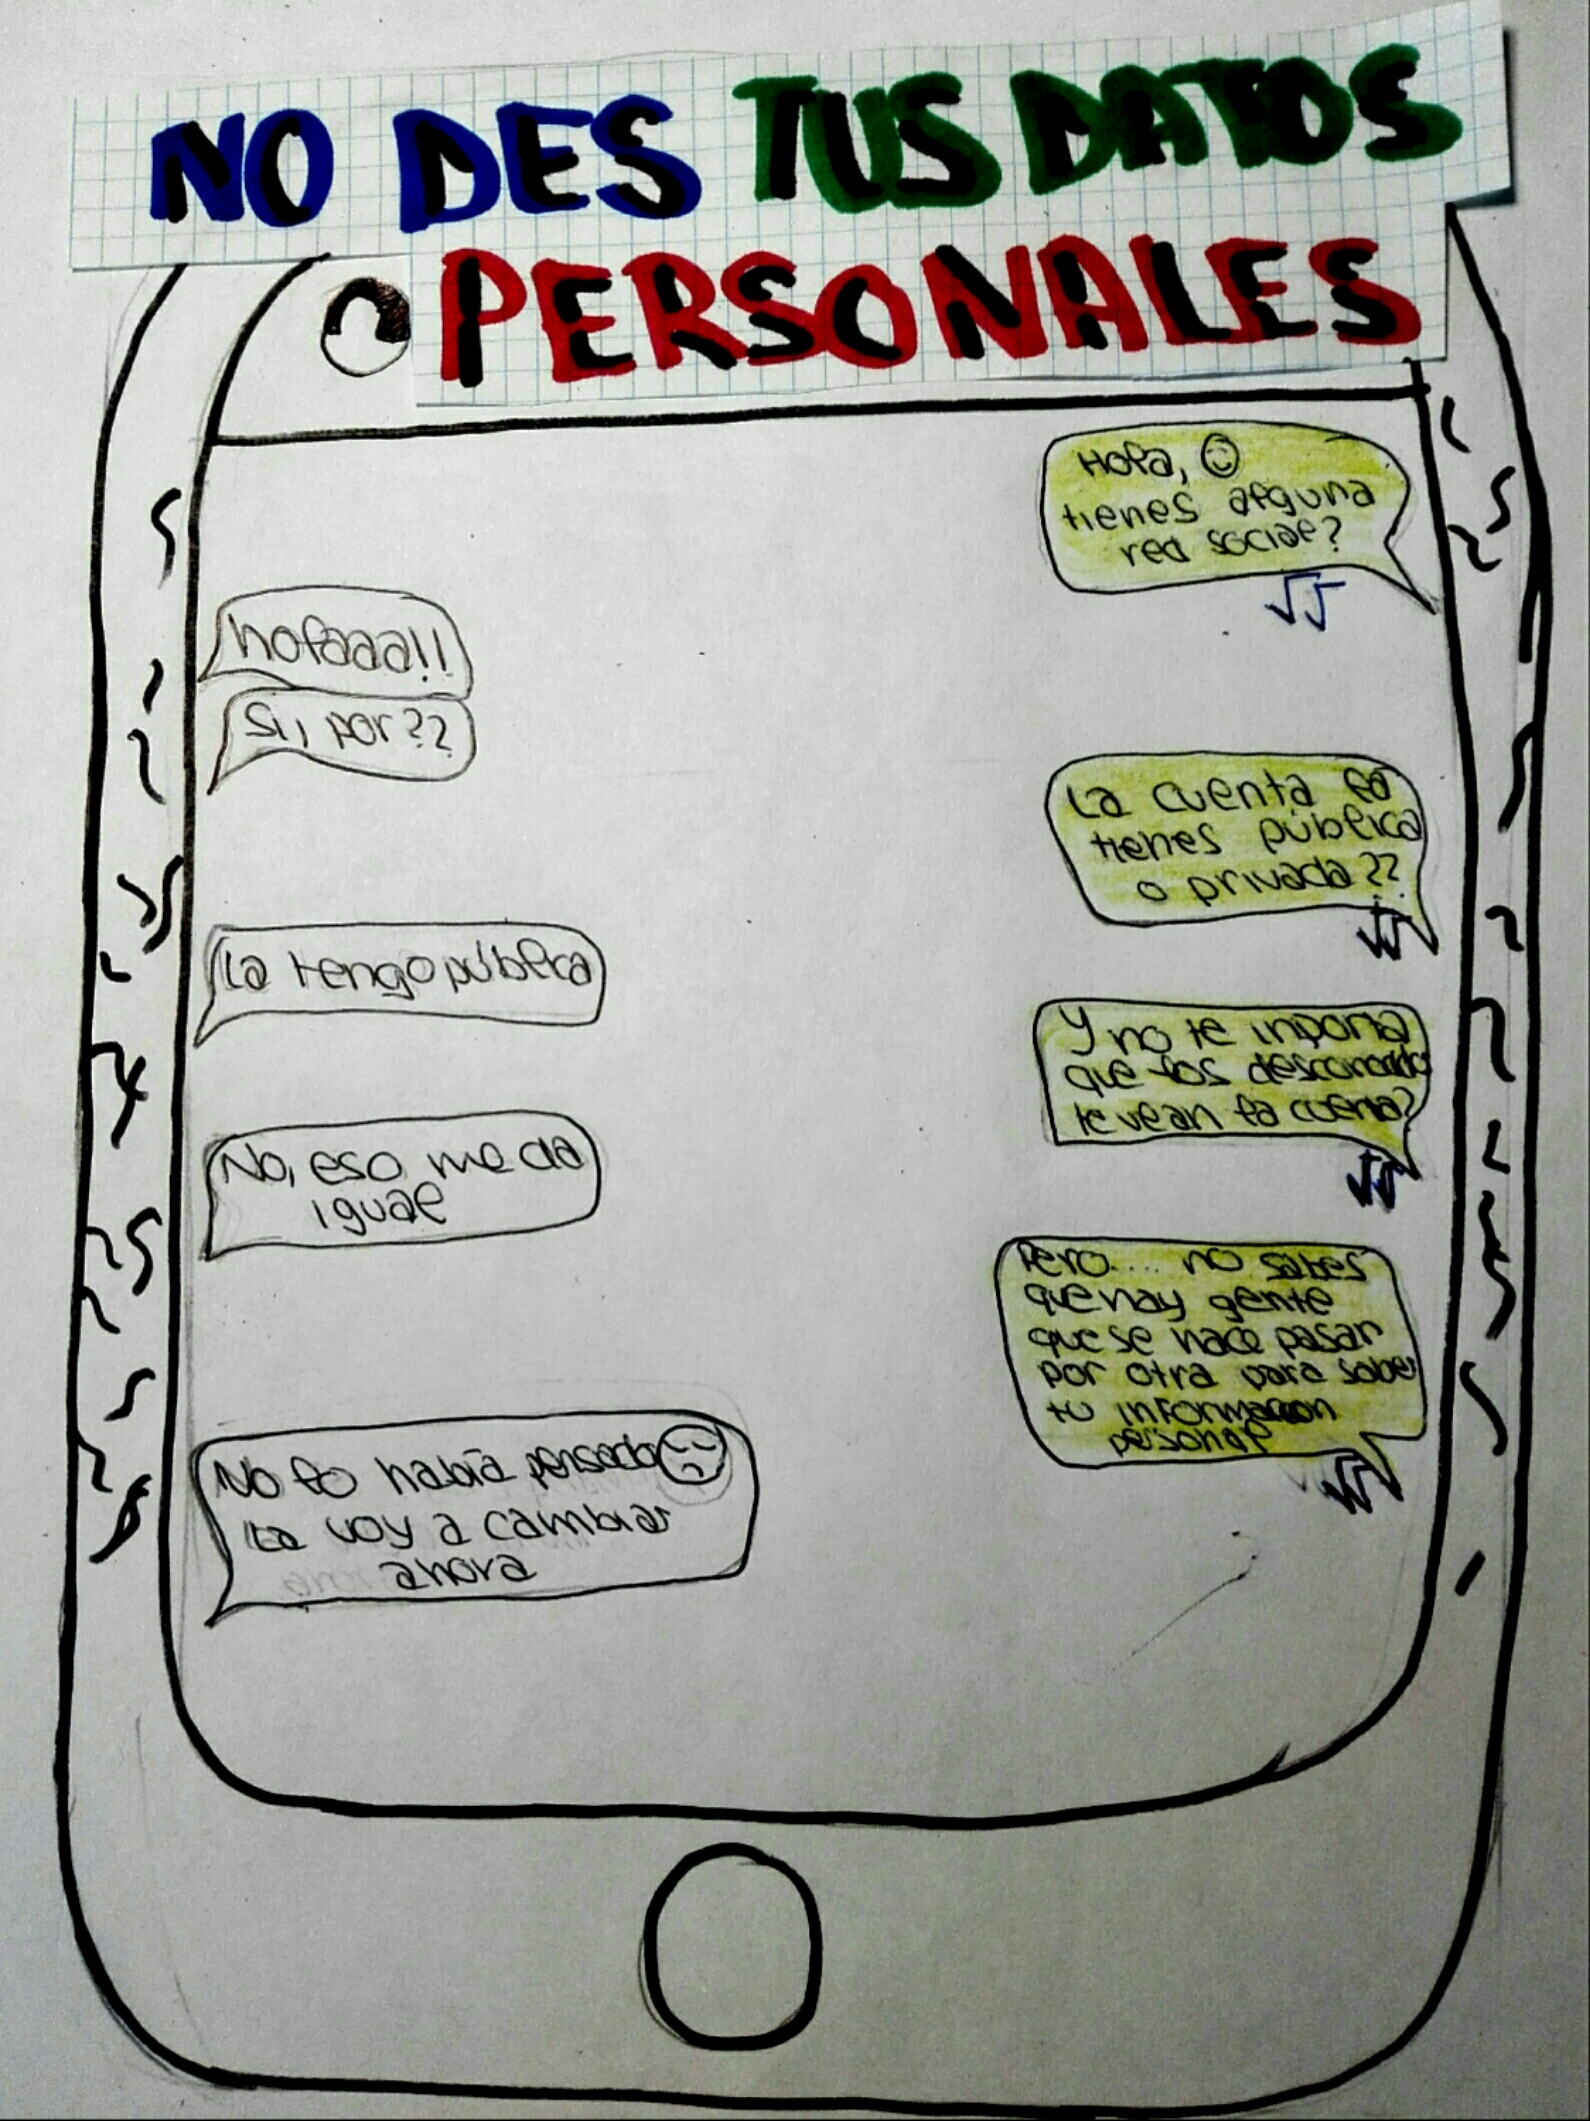 NO DES TUS DATOS
PERSONALES
Hola, ☺
tienes alguna
red social?
holaaa!!
Si, por??
La cuenta la
tienes pública
o privada??
La tengo pública
Y no te inporta
que los desconocidos
te vean la cuenta?
No, eso me da
igual
Pero.... no sabes
que hay gente
que se hace pasar
por otra para saber
tu informacion
personal
No lo había pensado
La voy a cambiar
ahora